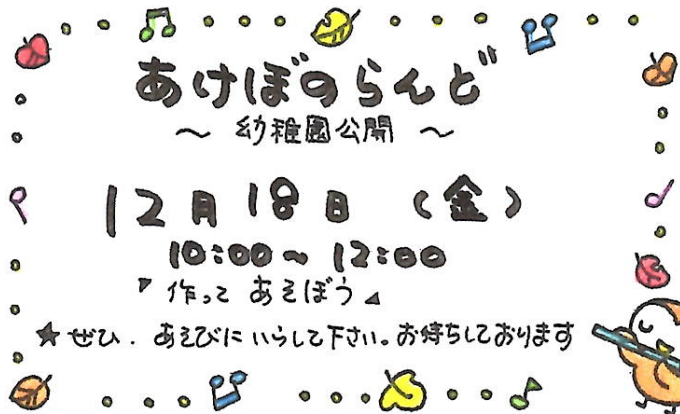 あけぼのらんど
～ 幼稚園公開 ～
12月18日（金）
10:00～12:00
「作って あそぼう」
★ ぜひ、あそびにいらして下さい。お待ちしております